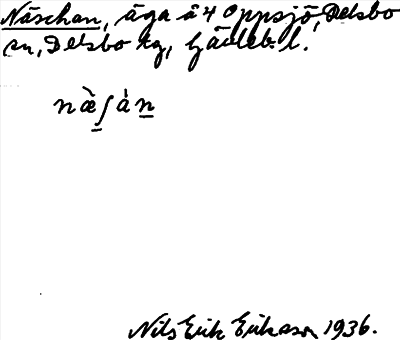 Näschan, äga å 4 Oppsjö, Delsbo
sn, Delsbo tg, Gävleb. l.
næ̀ʃàn
Nils Erik Eriksson 1936.